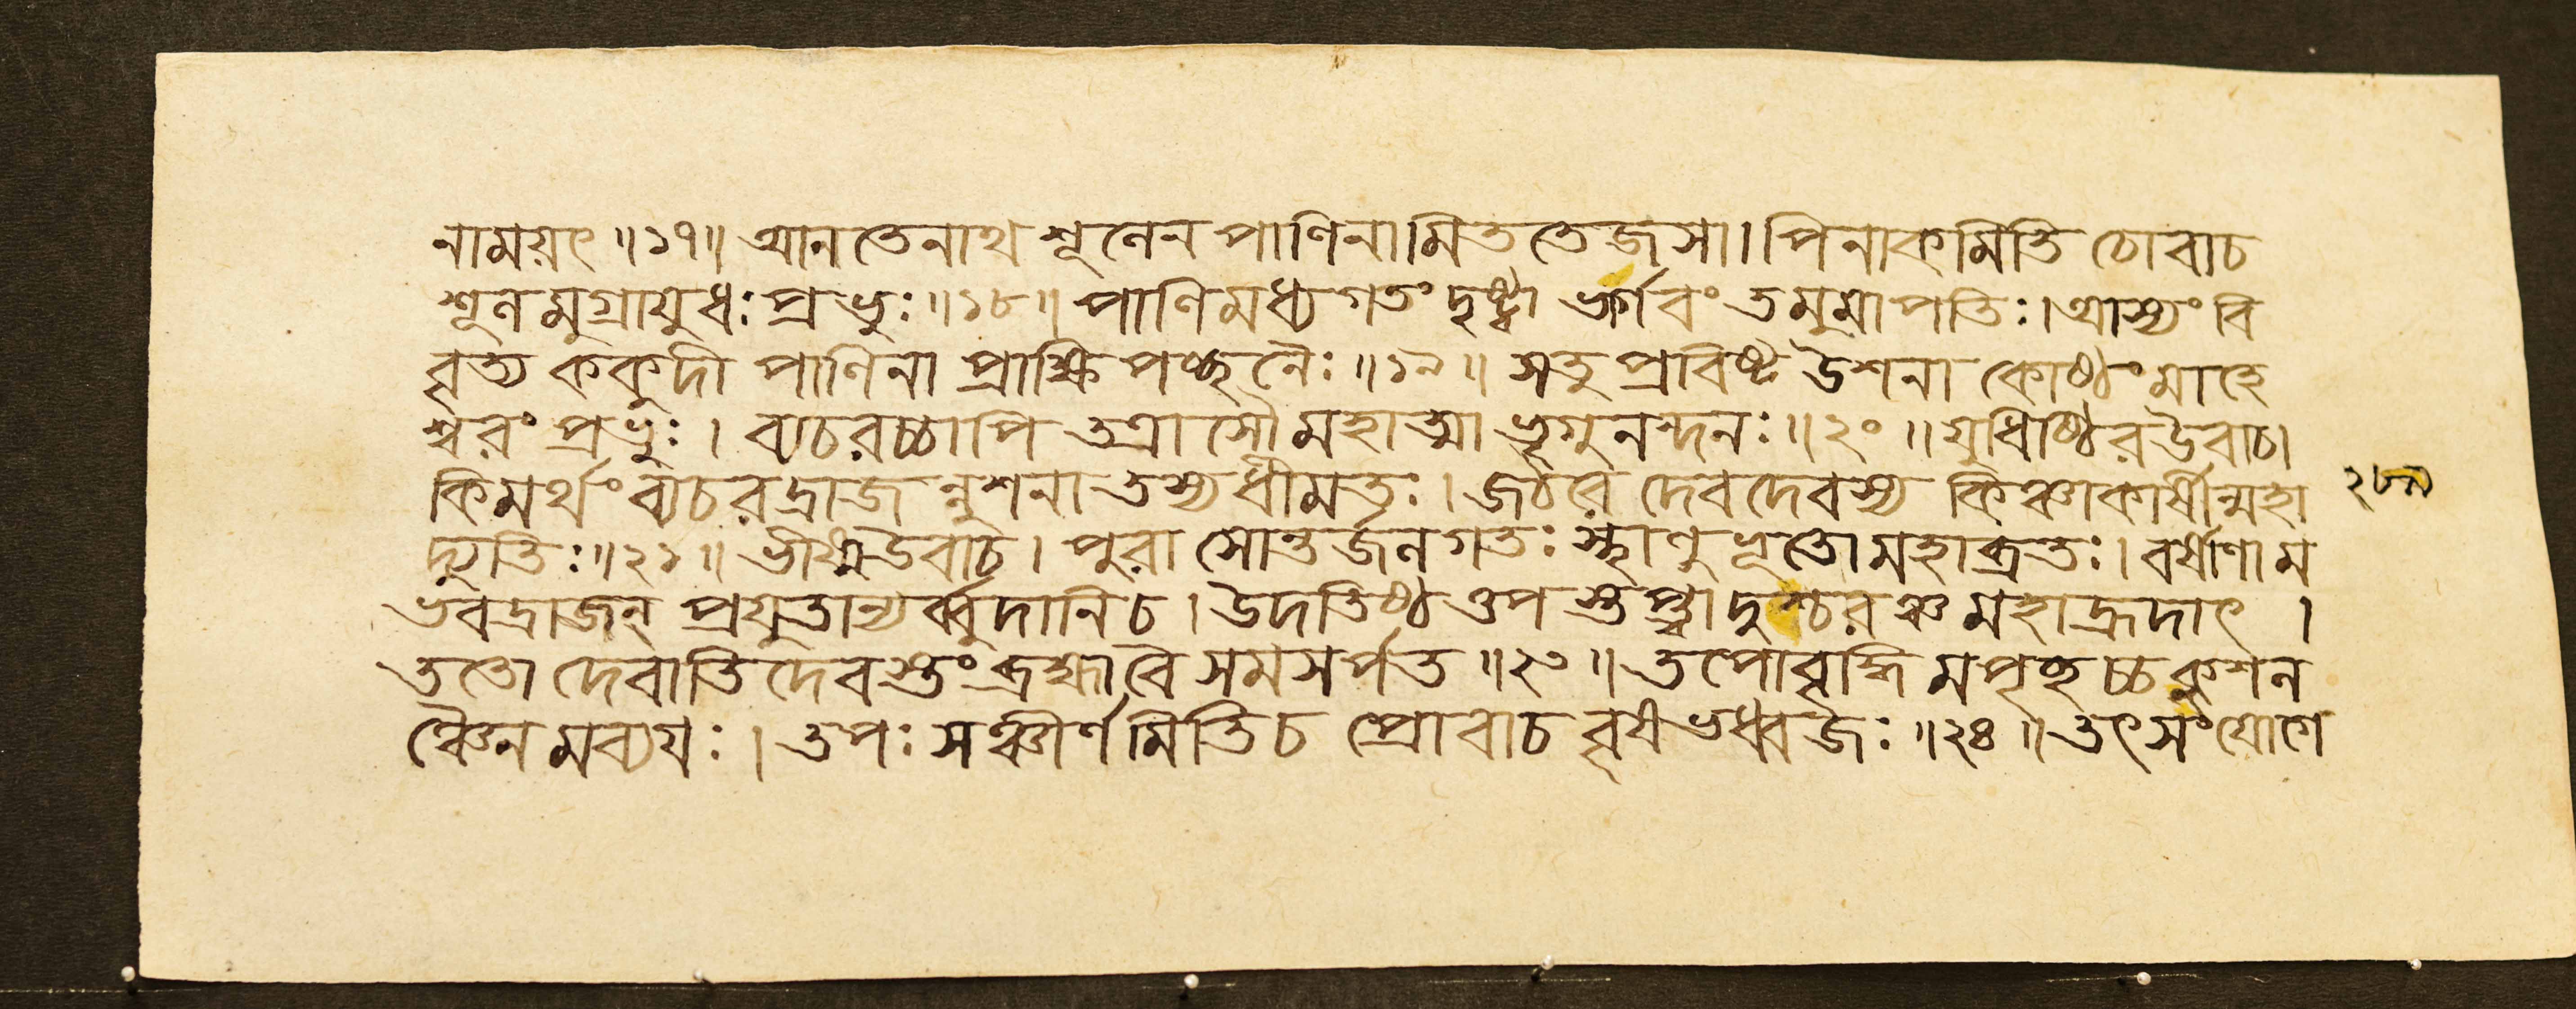 নাময়ৎ ॥ ১৭॥ আনতেনাথ শূলেন পাণিনামিততেজসা। পিনাকমিতি চোবাচ
শূলমুগ্রায়ুধঃ প্রভুঃ ॥ ১৮ ॥ পাণিমধ্যগতং দৃষ্ট্বা ভার্গবং তমুমাপতিঃ। আস্যং বি
বৃত্য ককুদী পাণিনা প্রাক্ষিপচ্ছনৈঃ ॥ ১৯ ॥ সতু প্রবিষ্ট উশনা কোষ্ঠং মাহে
শ্বরং প্রভুঃ । ব্যচরচ্চাপি তত্রাসৌ মহাত্মা ভৃগুনন্দনঃ ॥ ২০ ॥ যুধিষ্ঠির উবাচ।
কিমর্থং ব্যচরদ্রাজন্নুশনা তস্য ধীমতঃ । জঠরে দেবদেবস্য কিঞ্চাকার্ষীন্মহা
২৮৯
দ্যুতিঃ ॥ ২১ ॥ ভীষ্ম উবাচ । পুরা সোন্তর্জলগতঃ স্থাণুভূতো মহাব্রতঃ । বর্ষাণাম
ভবদ্রাজন্ প্রযুতান্যর্ব্বুদানি চ । উদতিষ্ঠ তপস্তপ্ত্বা দুশ্চরঞ্চ মহাহ্রদাৎ ।
ততো দেবাতিদেবস্তং ব্রহ্মা বৈ সমসর্পত ॥ ২৩ ॥ তপোবৃদ্ধিমপৃচ্ছচ্চ কুশল
ঞ্চৈনমব্যয়ঃ । তপঃ সঞ্চীর্ণমিতি চ প্রোবাচ বৃষভধ্বজঃ ॥ ২৪ ॥ তৎসংযোগে